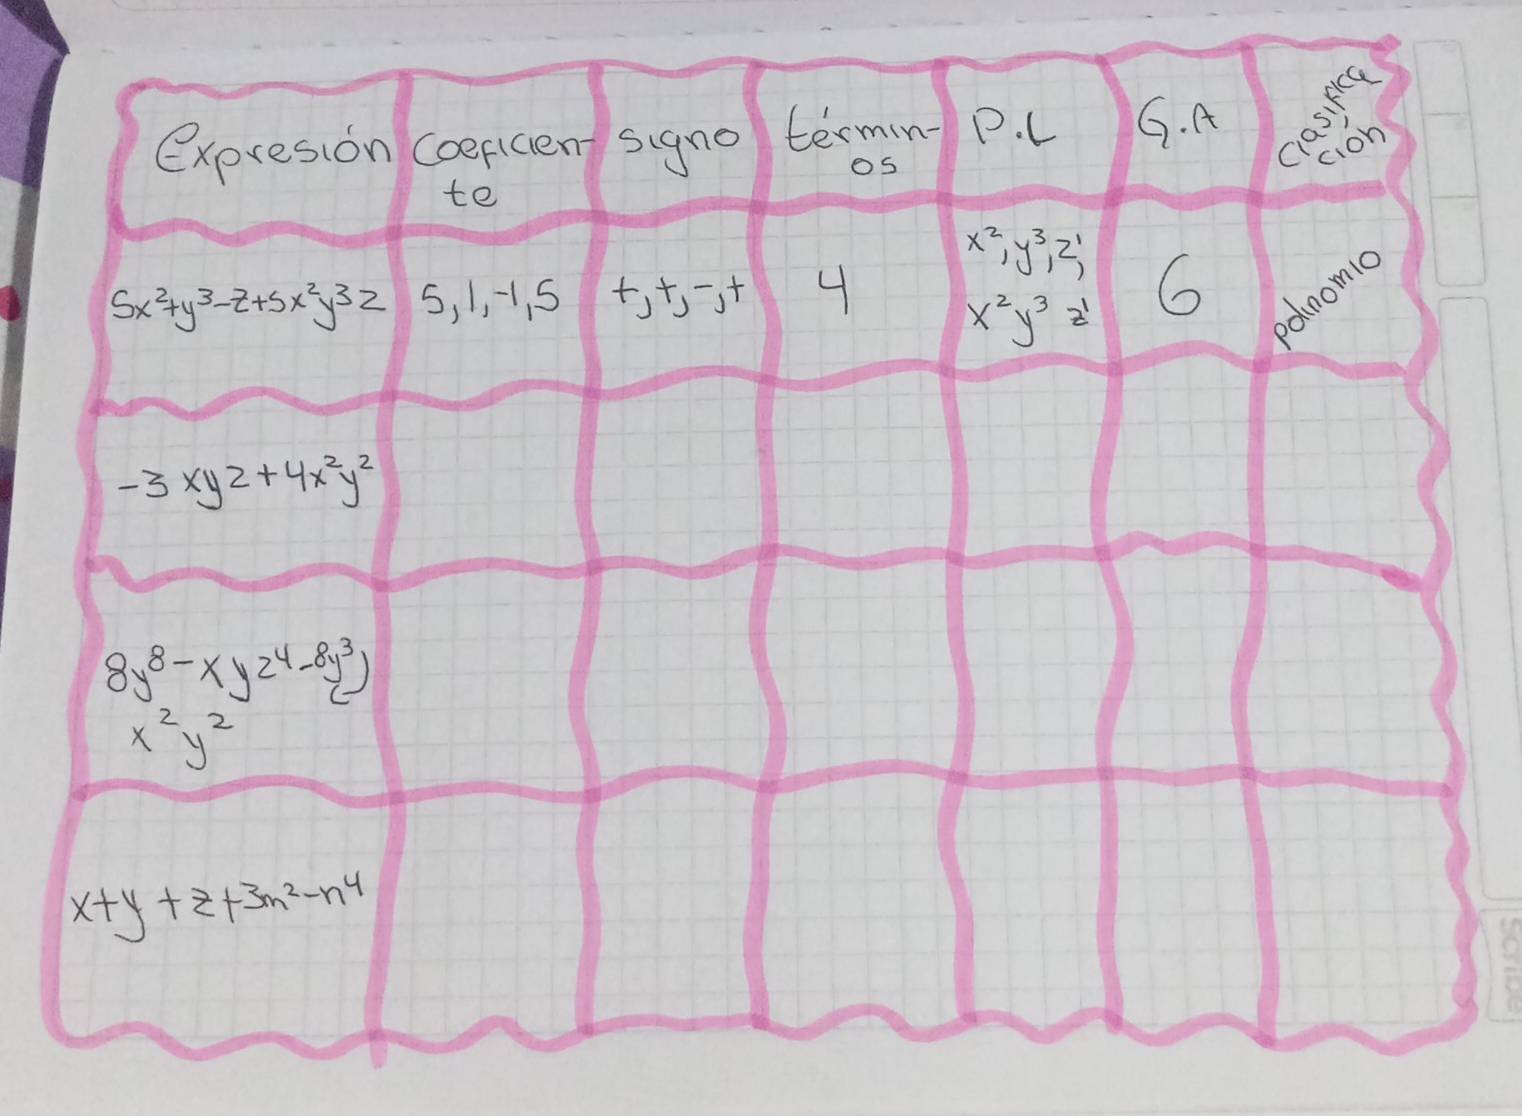 Expresión Coeficien- signo términ- P.L G.A Clasifica
te os ción
5x²+y³-z+5x²y³z 5,1,-1,5 +,+,-,+ 4 x²,y³,z¹, 6 polinomio
x²y³z¹
-3xyz+4x²y²
8y⁸-xyz⁴-8y³)
x²y²
x+y+z+3m²-n⁴
Scribe